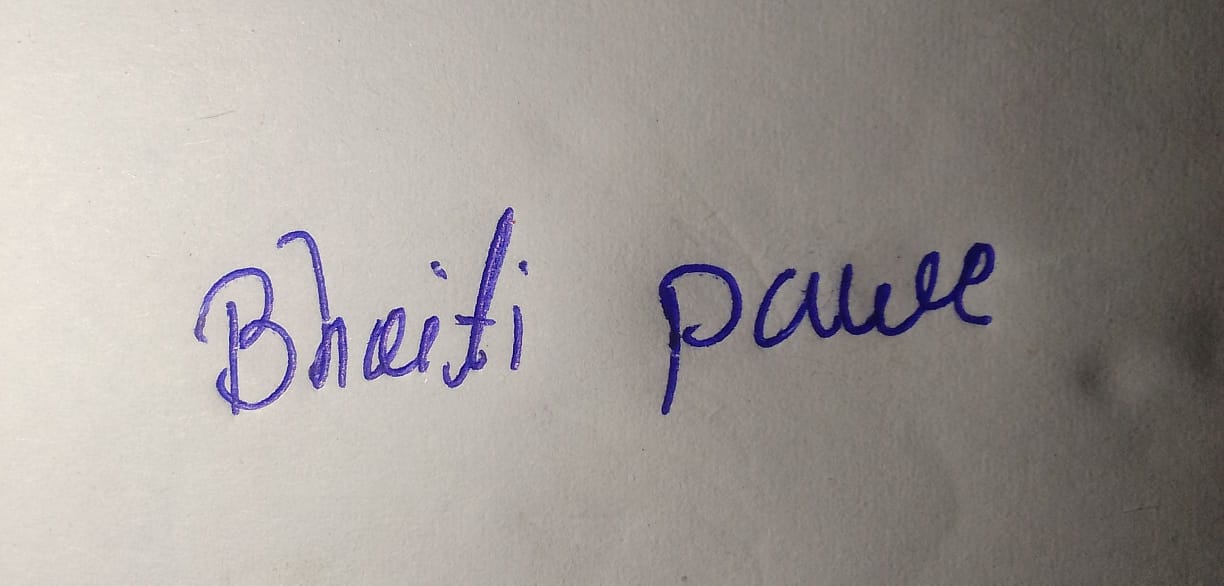 Bhaiti pawee